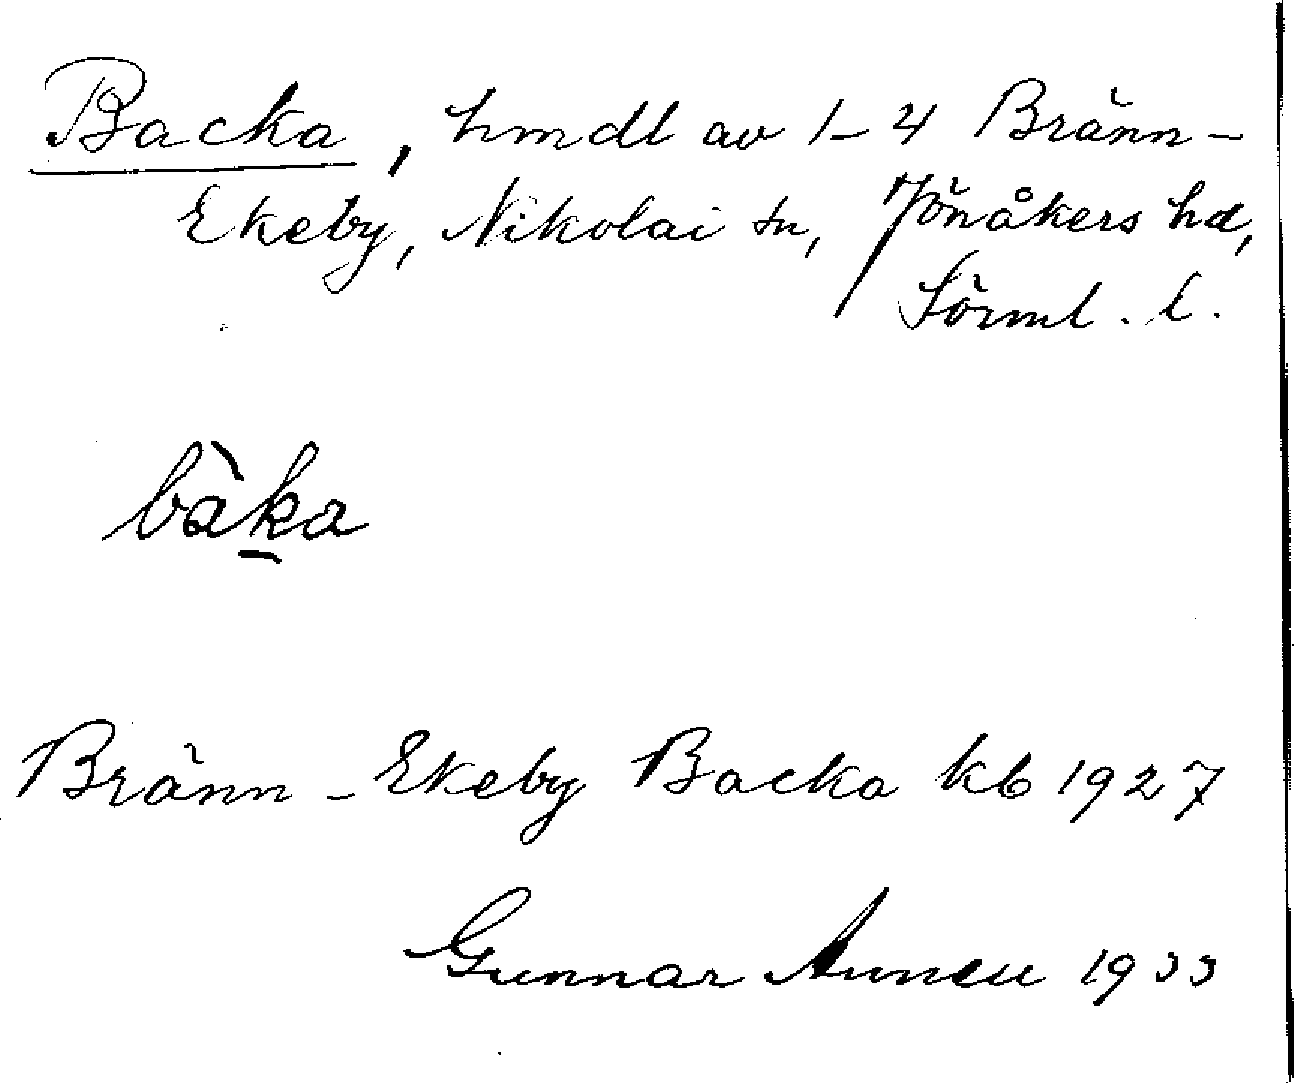 Backa, hmdl av 1-4 Bränn-
Ekeby, Nikolai sn, Jönåkers hd,
Sörml. l.
bàka
Bränn-Ekeby Backa kb 1927
Gunnar 1933